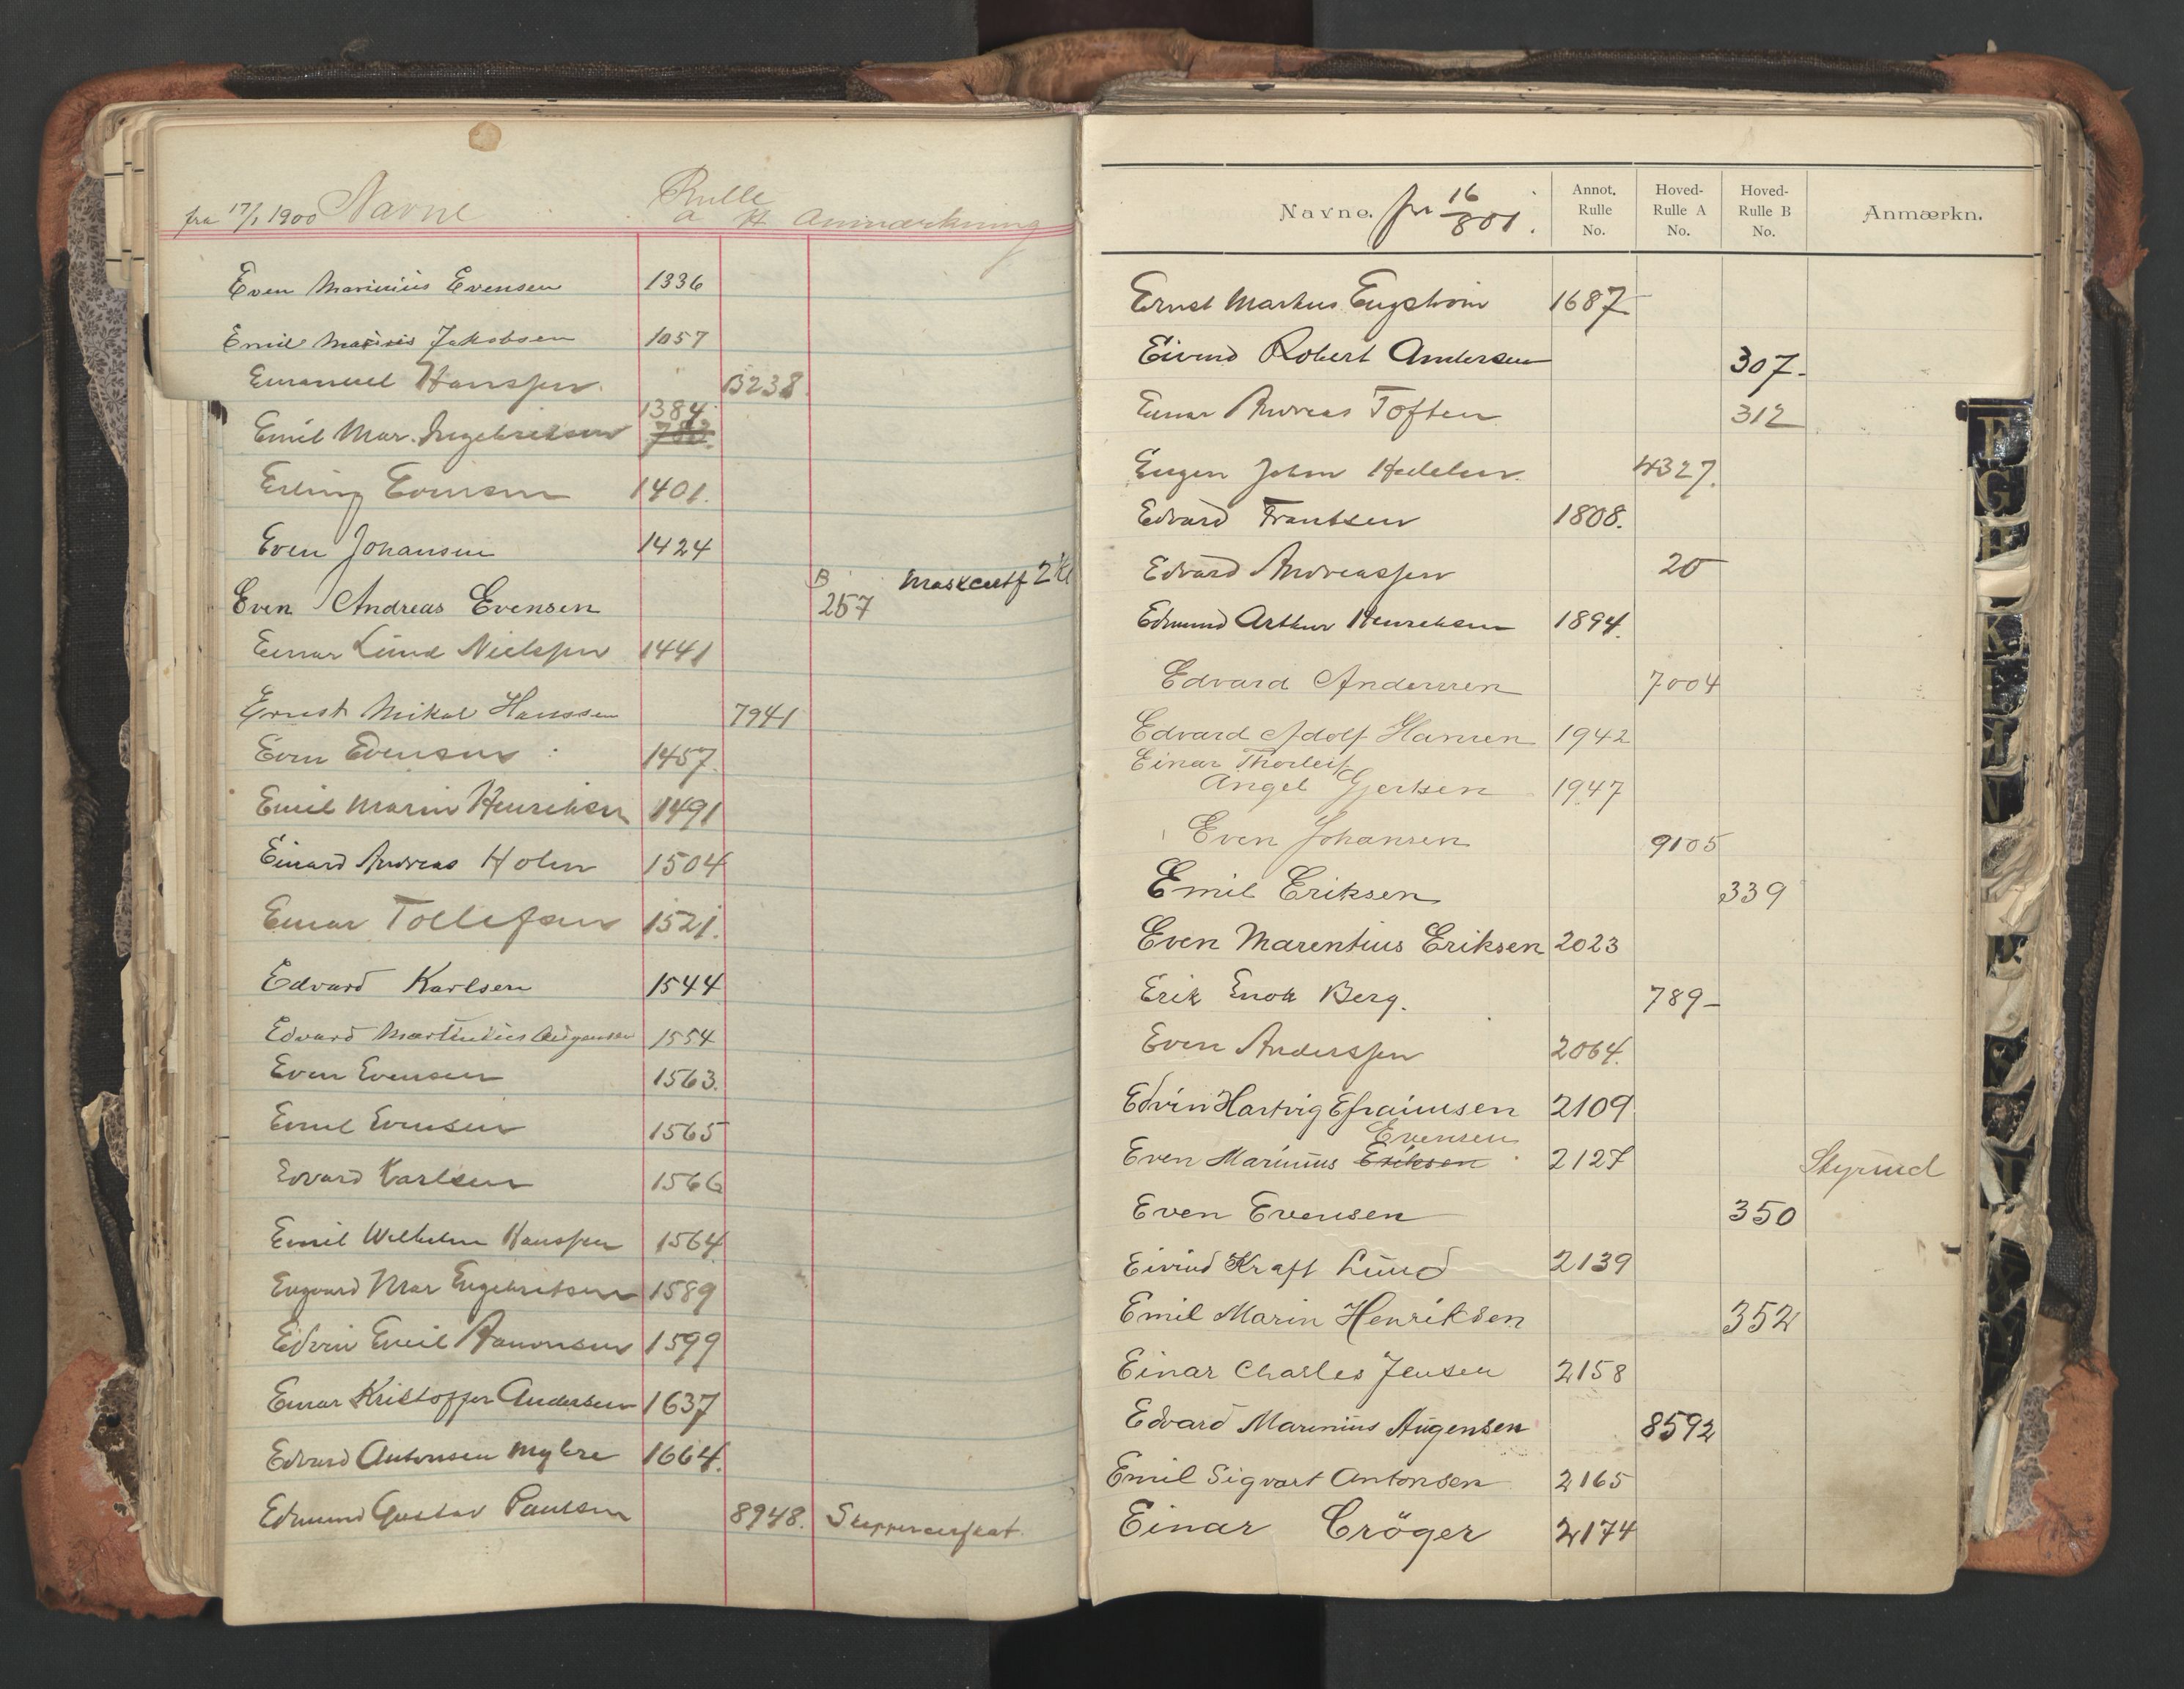 fra 17/1 1900 Navne Rulle
a H Anmærkning
Even Marinius Evensen 1336
Emil Marius Jakobsen 1057
Emanuel Hanssen B238
1384
Emil Mar. Ingebretsen
Erling Evensen 1401.
Even Johansen 1424
B Maskcertf 2 Kl
Even Andreas Evensen 257
Einar Lund Nielssen 1441
Ernst Mikal Hanssen 7941
Even Evensen 1457.
Emil Marin Henriksen 1491
Einard Andreas Holm 1504
Einar Tollefsen 1521.
Edvard Karlsen 1544
Edvard Martinius Augensen 1554
Even Evensen 1563.
Emil Evensen 1565
Edvard Karlsen 1566
Emil Wilhelm Hanssen 1564
Engvard Mar Engebretsen 1589
Edvin Emil Aamonsen 1599
Einar Kristoffer Andersen 1637
Edvard Antonsen Myhre 1664.
Edmund Gustav Paulsen 8948.
Navne. fra 16/8 01.
Annot. Rulle No.
Hoved-Rulle A No.
Hoved-Rulle B No.
Anmærkn.
Ernst Markus Engstrøm 1687
Eivind Robert Andersen 307.
Einar Andreas Toften 312
Eugen John Hedelin 4327.
Edvard Frantsen 1808.
Edvard Andreassen 20
Edmund Arthur Henriksen 1894.
Edvard Anderssen 7004
Edvard Adolf Hansen 1942
Einar Thorleif
Angel Gjertsen 1947
Even Johansen 9105
Emil Eriksen 339
Even Marentius Eriksen 2023
Erik Enok Berg. 789-
Even Anderssen 2064.
Edvin Hartvig Efraimsen 2109
Evensen
Even Marinius Eriksen 2127 Styrmd
Even Evensen 350
Eivind Kraft Lund 2139
Emil Marin Henriksen 352
Einar Charles Jensen 2158
Edvard Marinius Augensen 8592
Emil Sigvart Antonsen 2165
Einar Cröger 2174